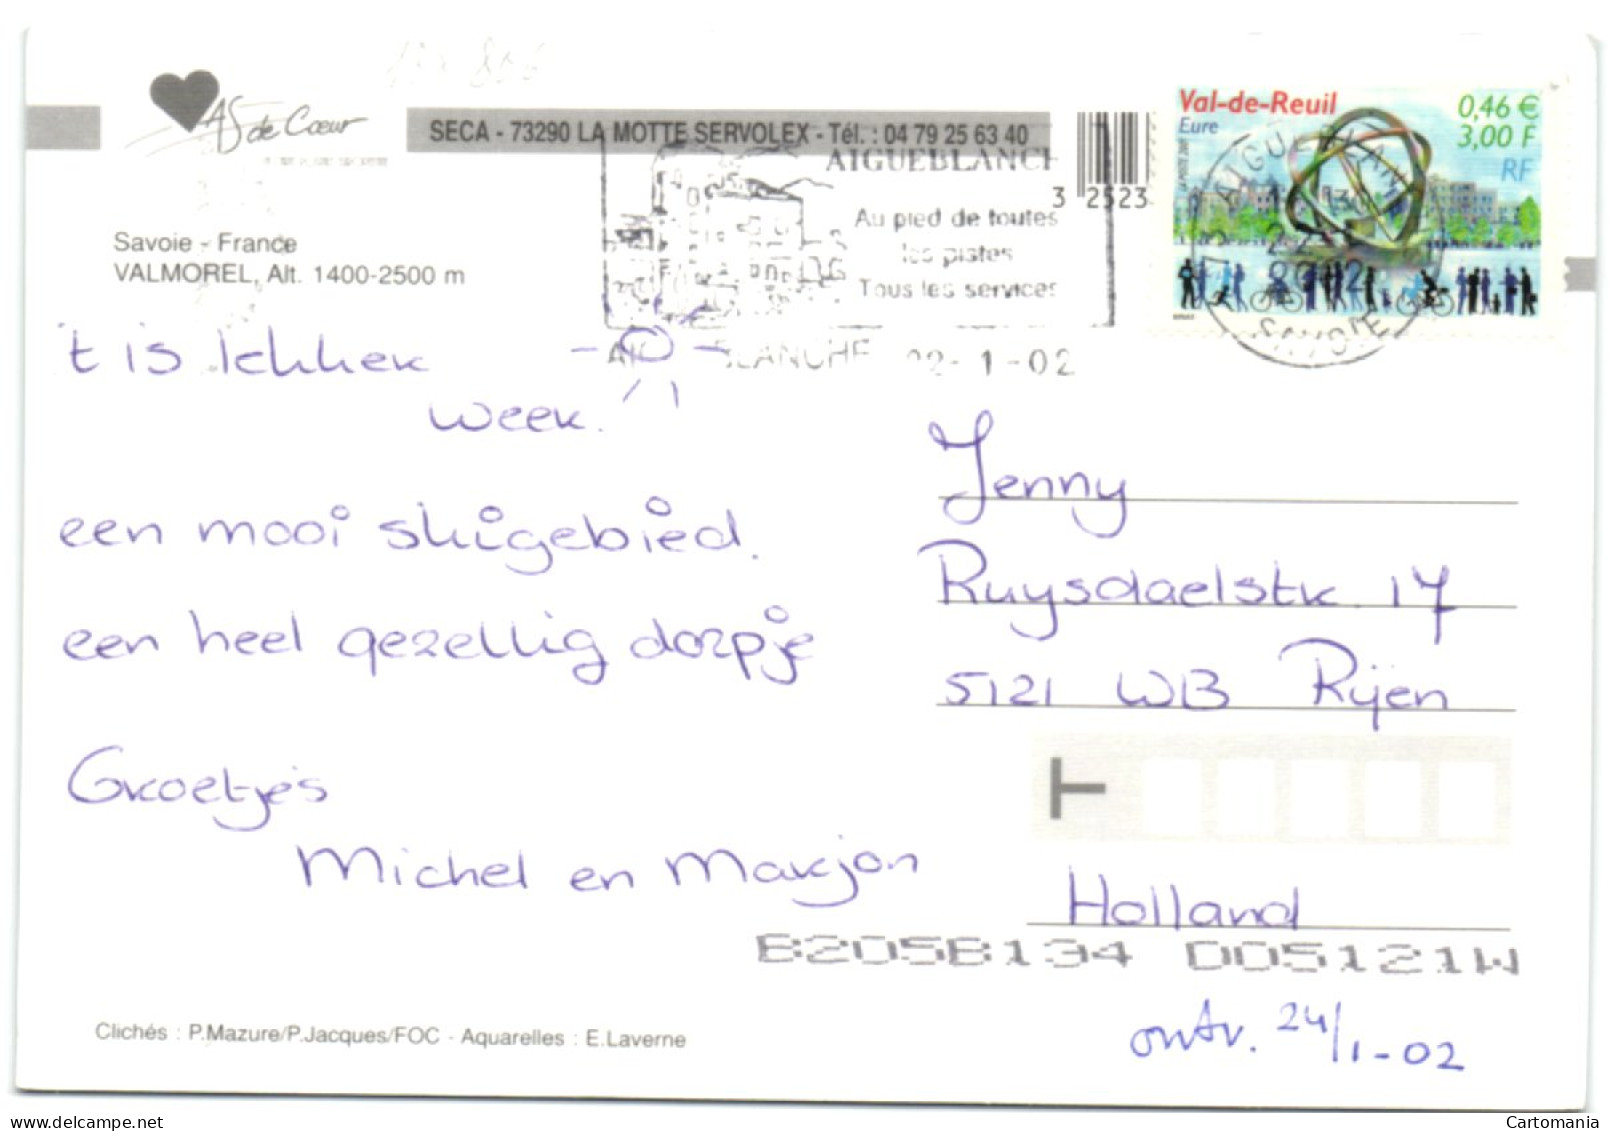 AS de Cœur
SECA - 73290 LA MOTTE SERVOLEX - Tél. : 04 79 25 63 40
Savoie - France
VALMOREL, Alt. 1400-2500 m
AIGUEBLANCH
Au pied de toutes
les pistes
Tous les services
LANCHE 22-1-02
3 2523
Val-de-Reuil
Eure
0,46 €
3,00 F
RF
AIGUEBLANCHE
2002
SAVOIE
't is lekker
week.
een mooi skigebied.
een heel gezellig dorpje
Groetjes
Michel en Marjon
Jenny
Ruysdaelstr. 17
5121 WB Rijen
Holland
B205B134 D05121W
ontv. 24/1-02
Clichés : P.Mazure/P.Jacques/FOC - Aquarelles : E.Laverne
www.delcampe.net
Cartomania